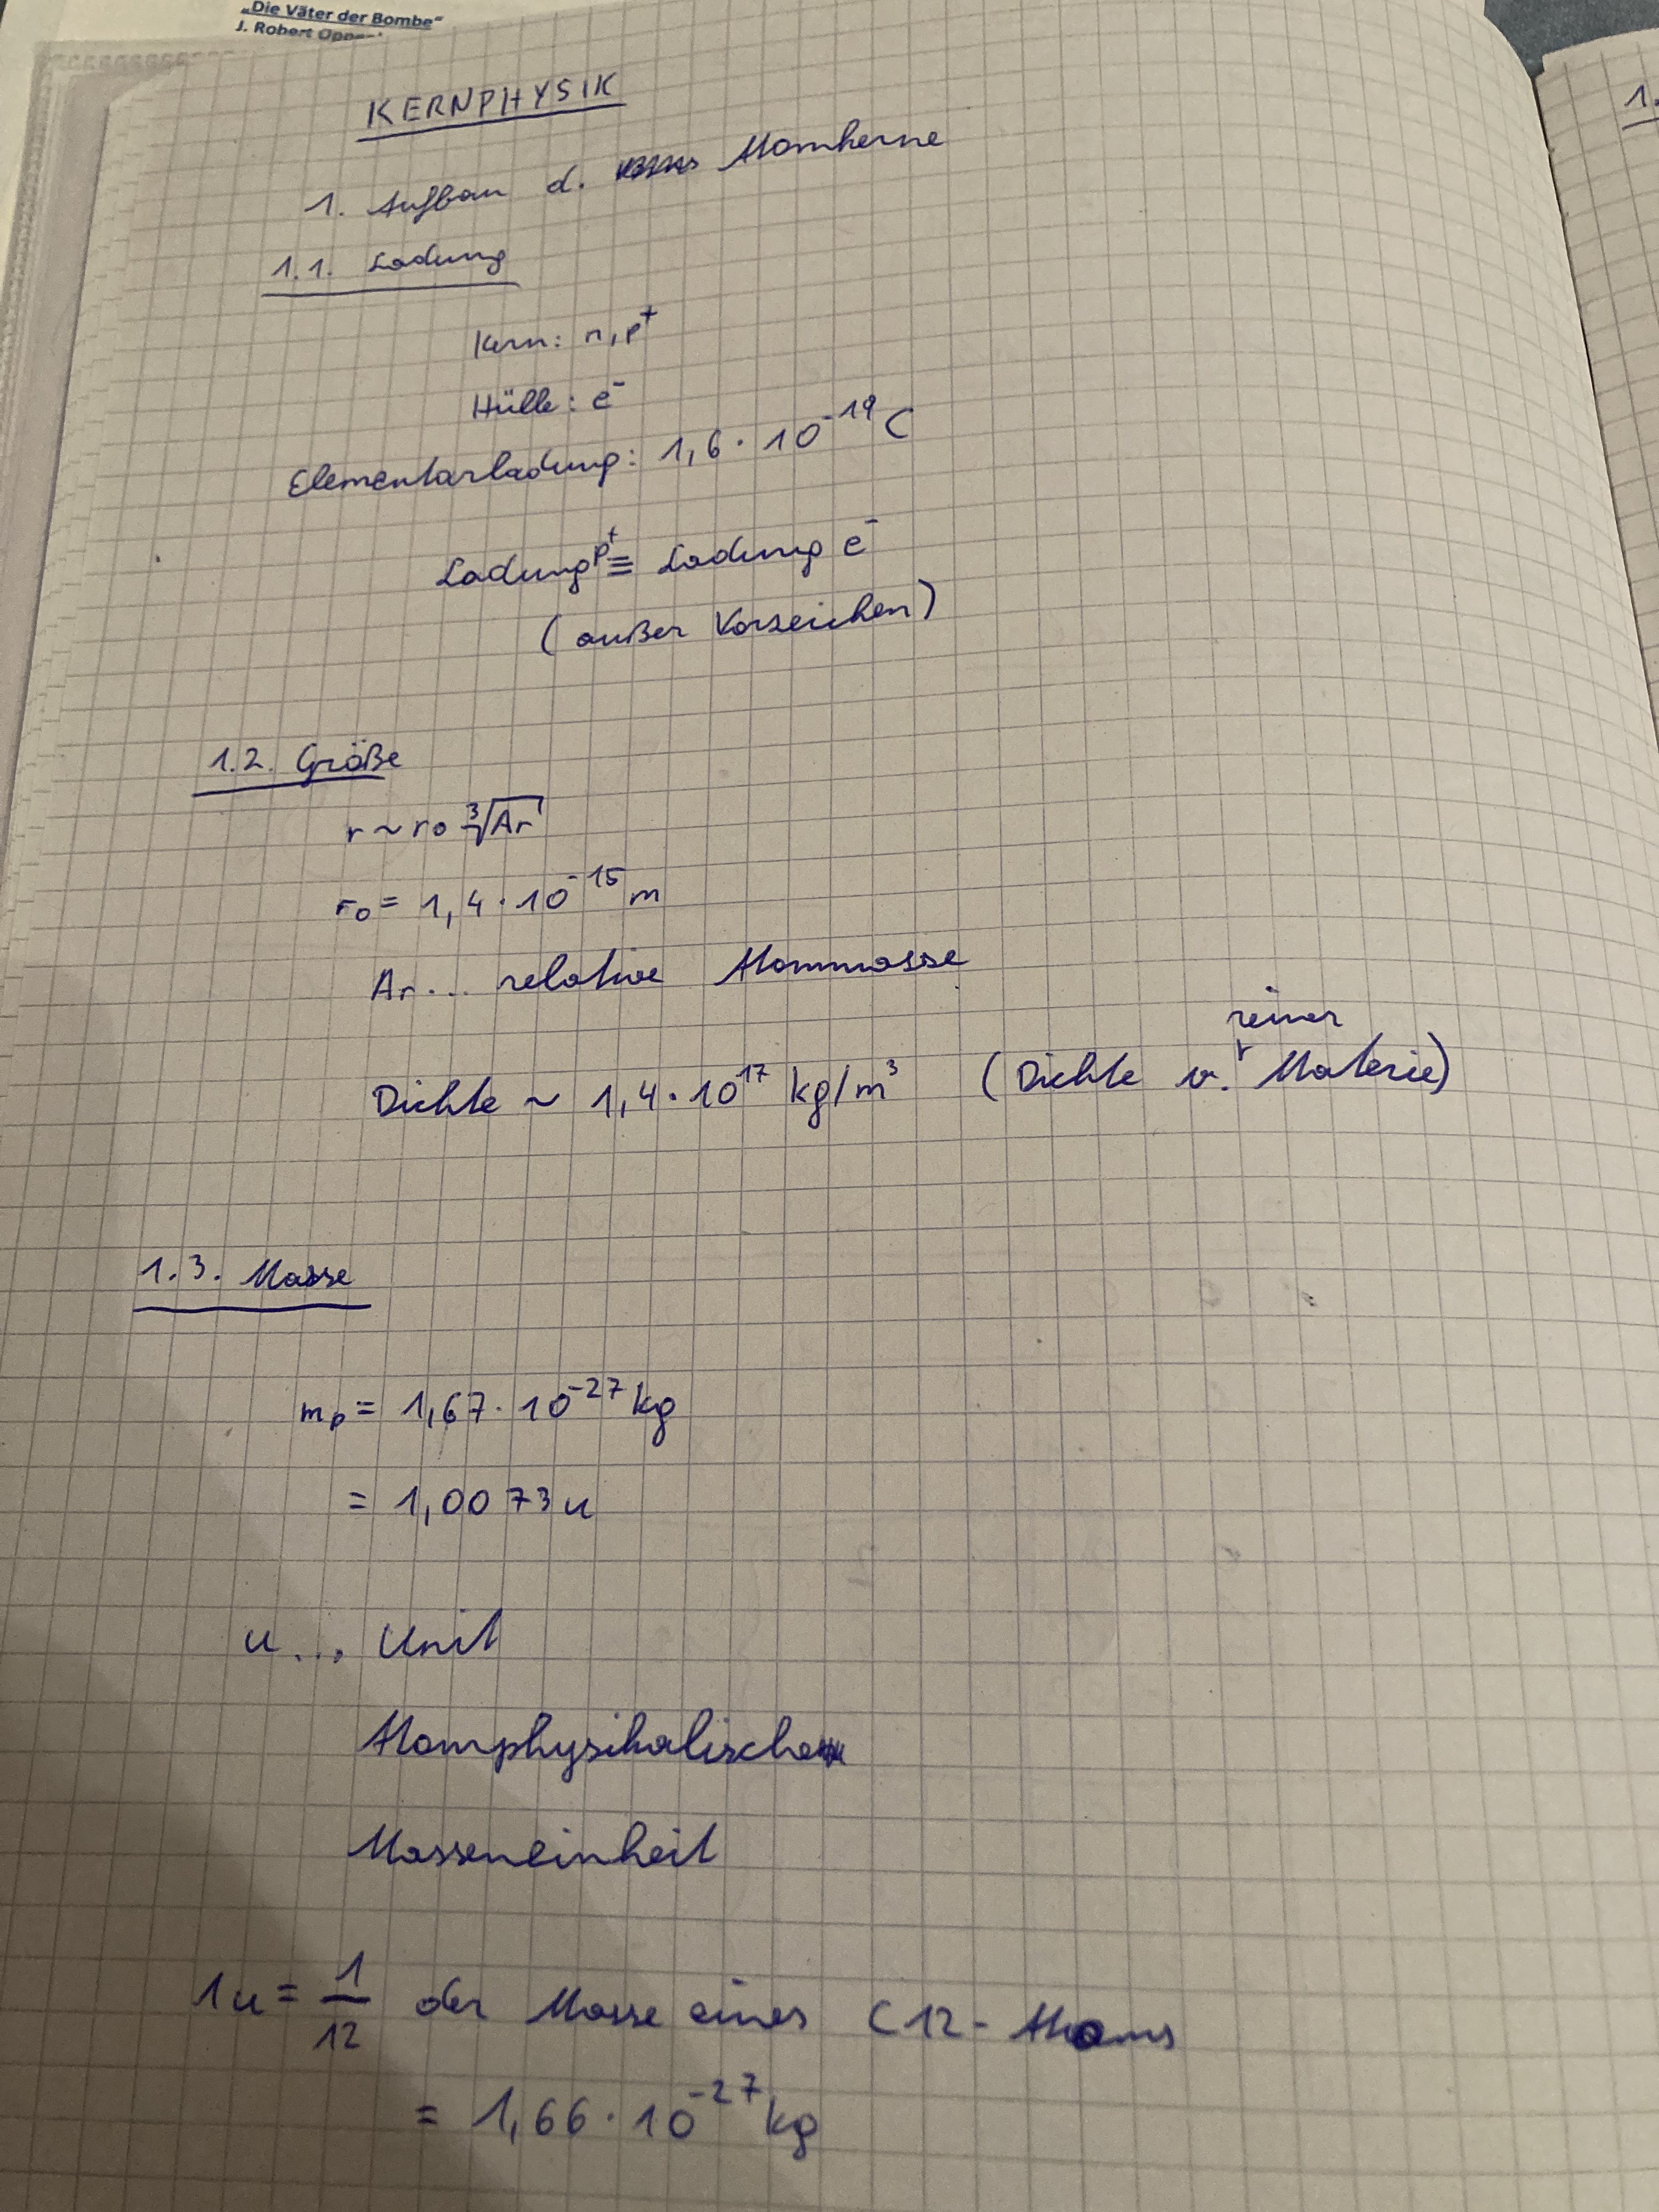 „Die Väter der Bombe“
J. Robert
KERNPHYSIK
1. Aufbau d. Atomkerne
1.1. Ladung
Kern: n, p⁺
Hülle: e⁻
Elementarladung: 1,6 · 10⁻¹⁹ C
Ladung p⁺ ≡ Ladung e⁻
(außer Vorzeichen)
1.2. Größe
r ~ r₀ ∛Ar
r₀ = 1,4 · 10⁻¹⁵ m
Ar... relative Atommasse
Dichte ~ 1,4 · 10¹⁷ kg/m³ (Dichte v. reiner Materie)
1.3. Masse
mₚ = 1,67 · 10⁻²⁷ kg
= 1,0073 u
u ... Unit
Atomphysikalische
Masseneinheit
1u = 1/12 der Masse eines C12-Atoms
= 1,66 · 10⁻²⁷ kg
1.